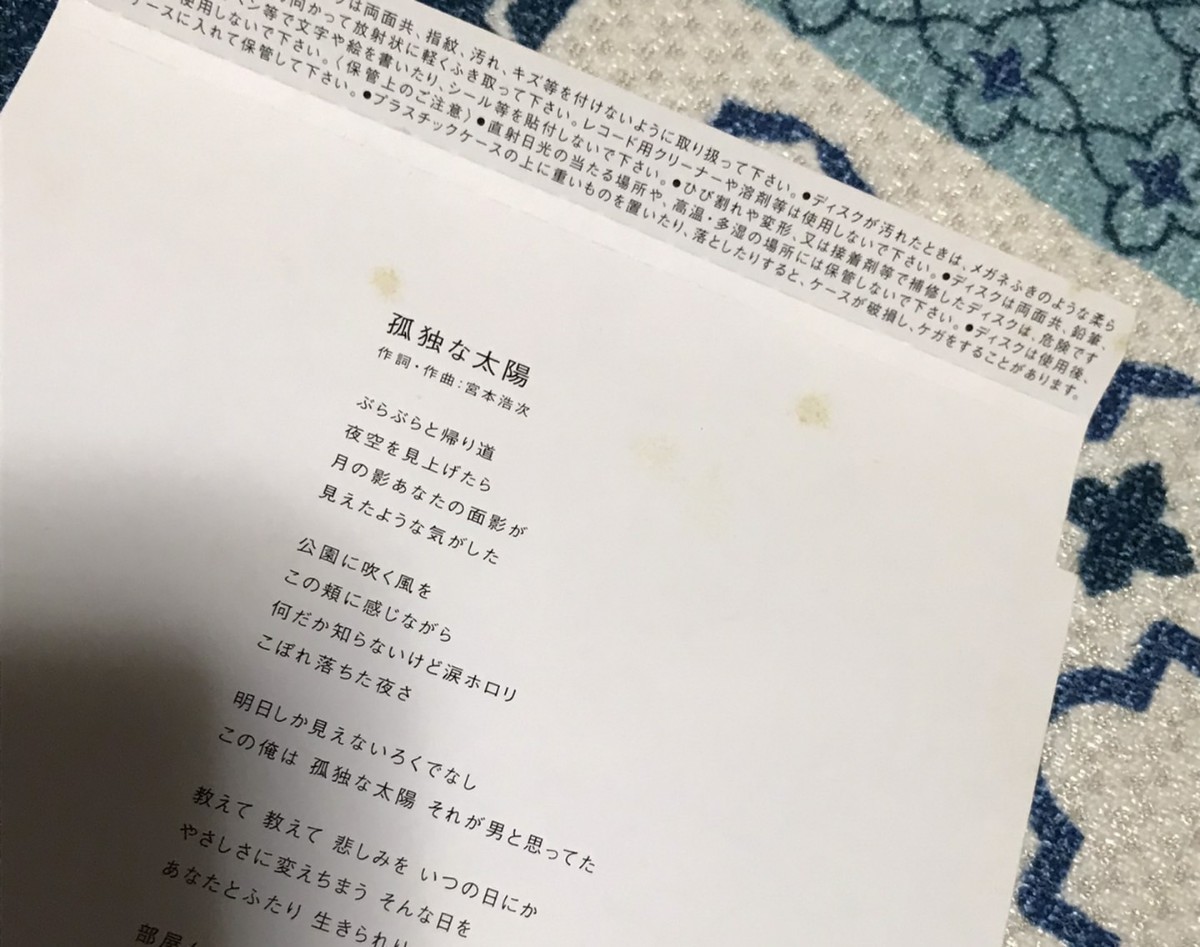 は両面共、指紋、汚れ、キズ等を付けないように取り扱って下さい。●ディスクが汚れたときは、メガネふきのような柔ら
向かって放射状に軽くふき取って下さい。レコード用クリーナーや溶剤等は使用しないで下さい。●ディスクは両面共、鉛筆、
ペン等で文字や絵を書いたり、シール等を貼付しないで下さい。●ひび割れや変形、又は接着剤等で補修したディスクは、危険です
使用しないで下さい。〈保管上のご注意〉●直射日光の当たる場所や、高温・多湿の場所には保管しないで下さい。●ディスクは使用後、
ケースに入れて保管して下さい。●プラスチックケースの上に重いものを置いたり、落としたりすると、ケースが破損し、ケガをすることがあります。
孤独な太陽
作詞・作曲：宮本浩次
ぶらぶらと帰り道
夜空を見上げたら
月の影あなたの面影が
見えたような気がした
公園に吹く風を
この頬に感じながら
何だか知らないけど涙ホロリ
こぼれ落ちた夜さ
明日しか見えないろくでなし
この俺は 孤独な太陽 それが男と思ってた
教えて 教えて 悲しみを いつの日にか
やさしさに変えちまう そんな日を
あなたとふたり 生きられ
部屋